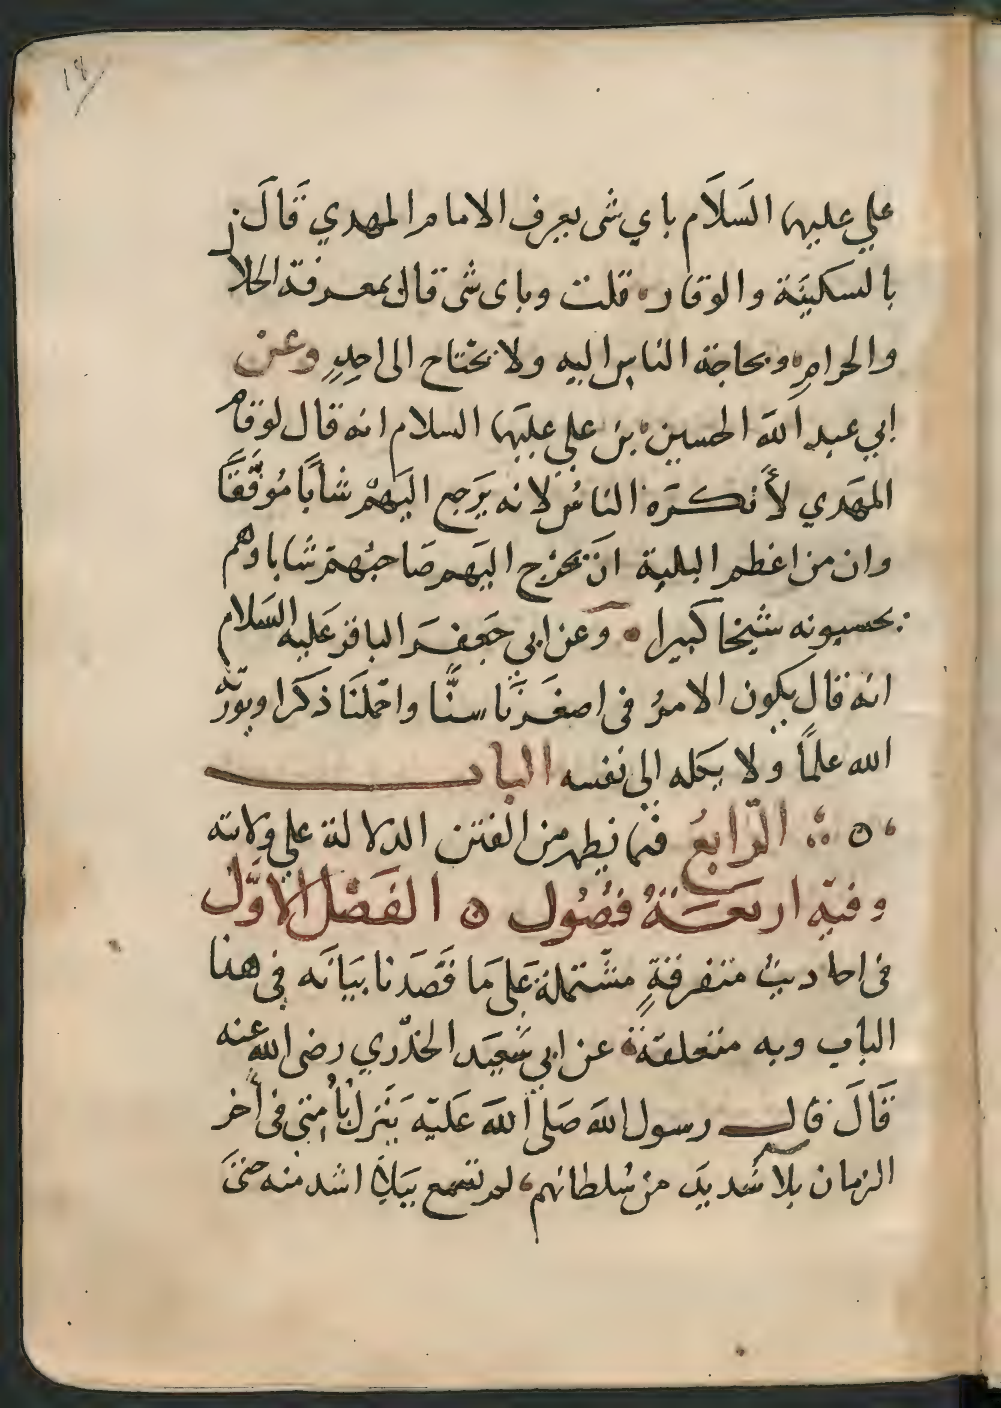 ١٨
علي عليهما السَلَام باي شى يعرف الامام المهدي قَالَ
بالسكينَة والوقار قلت وباى شى قال بمعرفة الحلال
والحرامِ وبحاجة الناس اليه ولا يحتاح الى احِدٍ وعن
ابي عبد الله الحسين بن علي عليَهما السلام انه قال لو قام
المهَدي لأنكَرَه الناسُ لانه يَرجع اليَهمْ شابًا مُوَفَّقًا
وان من اعظم البلية انَ يخرج اليَهم صَاحبُهمْ شابا وهم
يحسبونه شيخا كبيرا وَعن ابي جَعفَر الباقر عَليه السَلام
انه قال يكون الامرُ فى اصغَرنَا سنًّا واجملنَا ذكرا ويورّثه
الله علمًا ولا يكله الى نفسه الباب
الرّابعُ فيما يظهر من الفتن الدلالة علي ولايته
وفيه اربعَةُ فصُول الفَصْل الاوَّل
فى احاديثُ متفرقةٍ مشتملة عَلى مَا قصَدنا بيَانَه فى هذا
الباب وبه متعلقة عن ابي سَعِيَد الخدّري رضى الله عنه
قَالَ قال رسول الله صَلى الله عَليَه يَنَزل بأمتي فى أخر
الزمان بلا شَديدَ من سُلطانهم لم تسمع ببَلاً اشد منه حتىَ